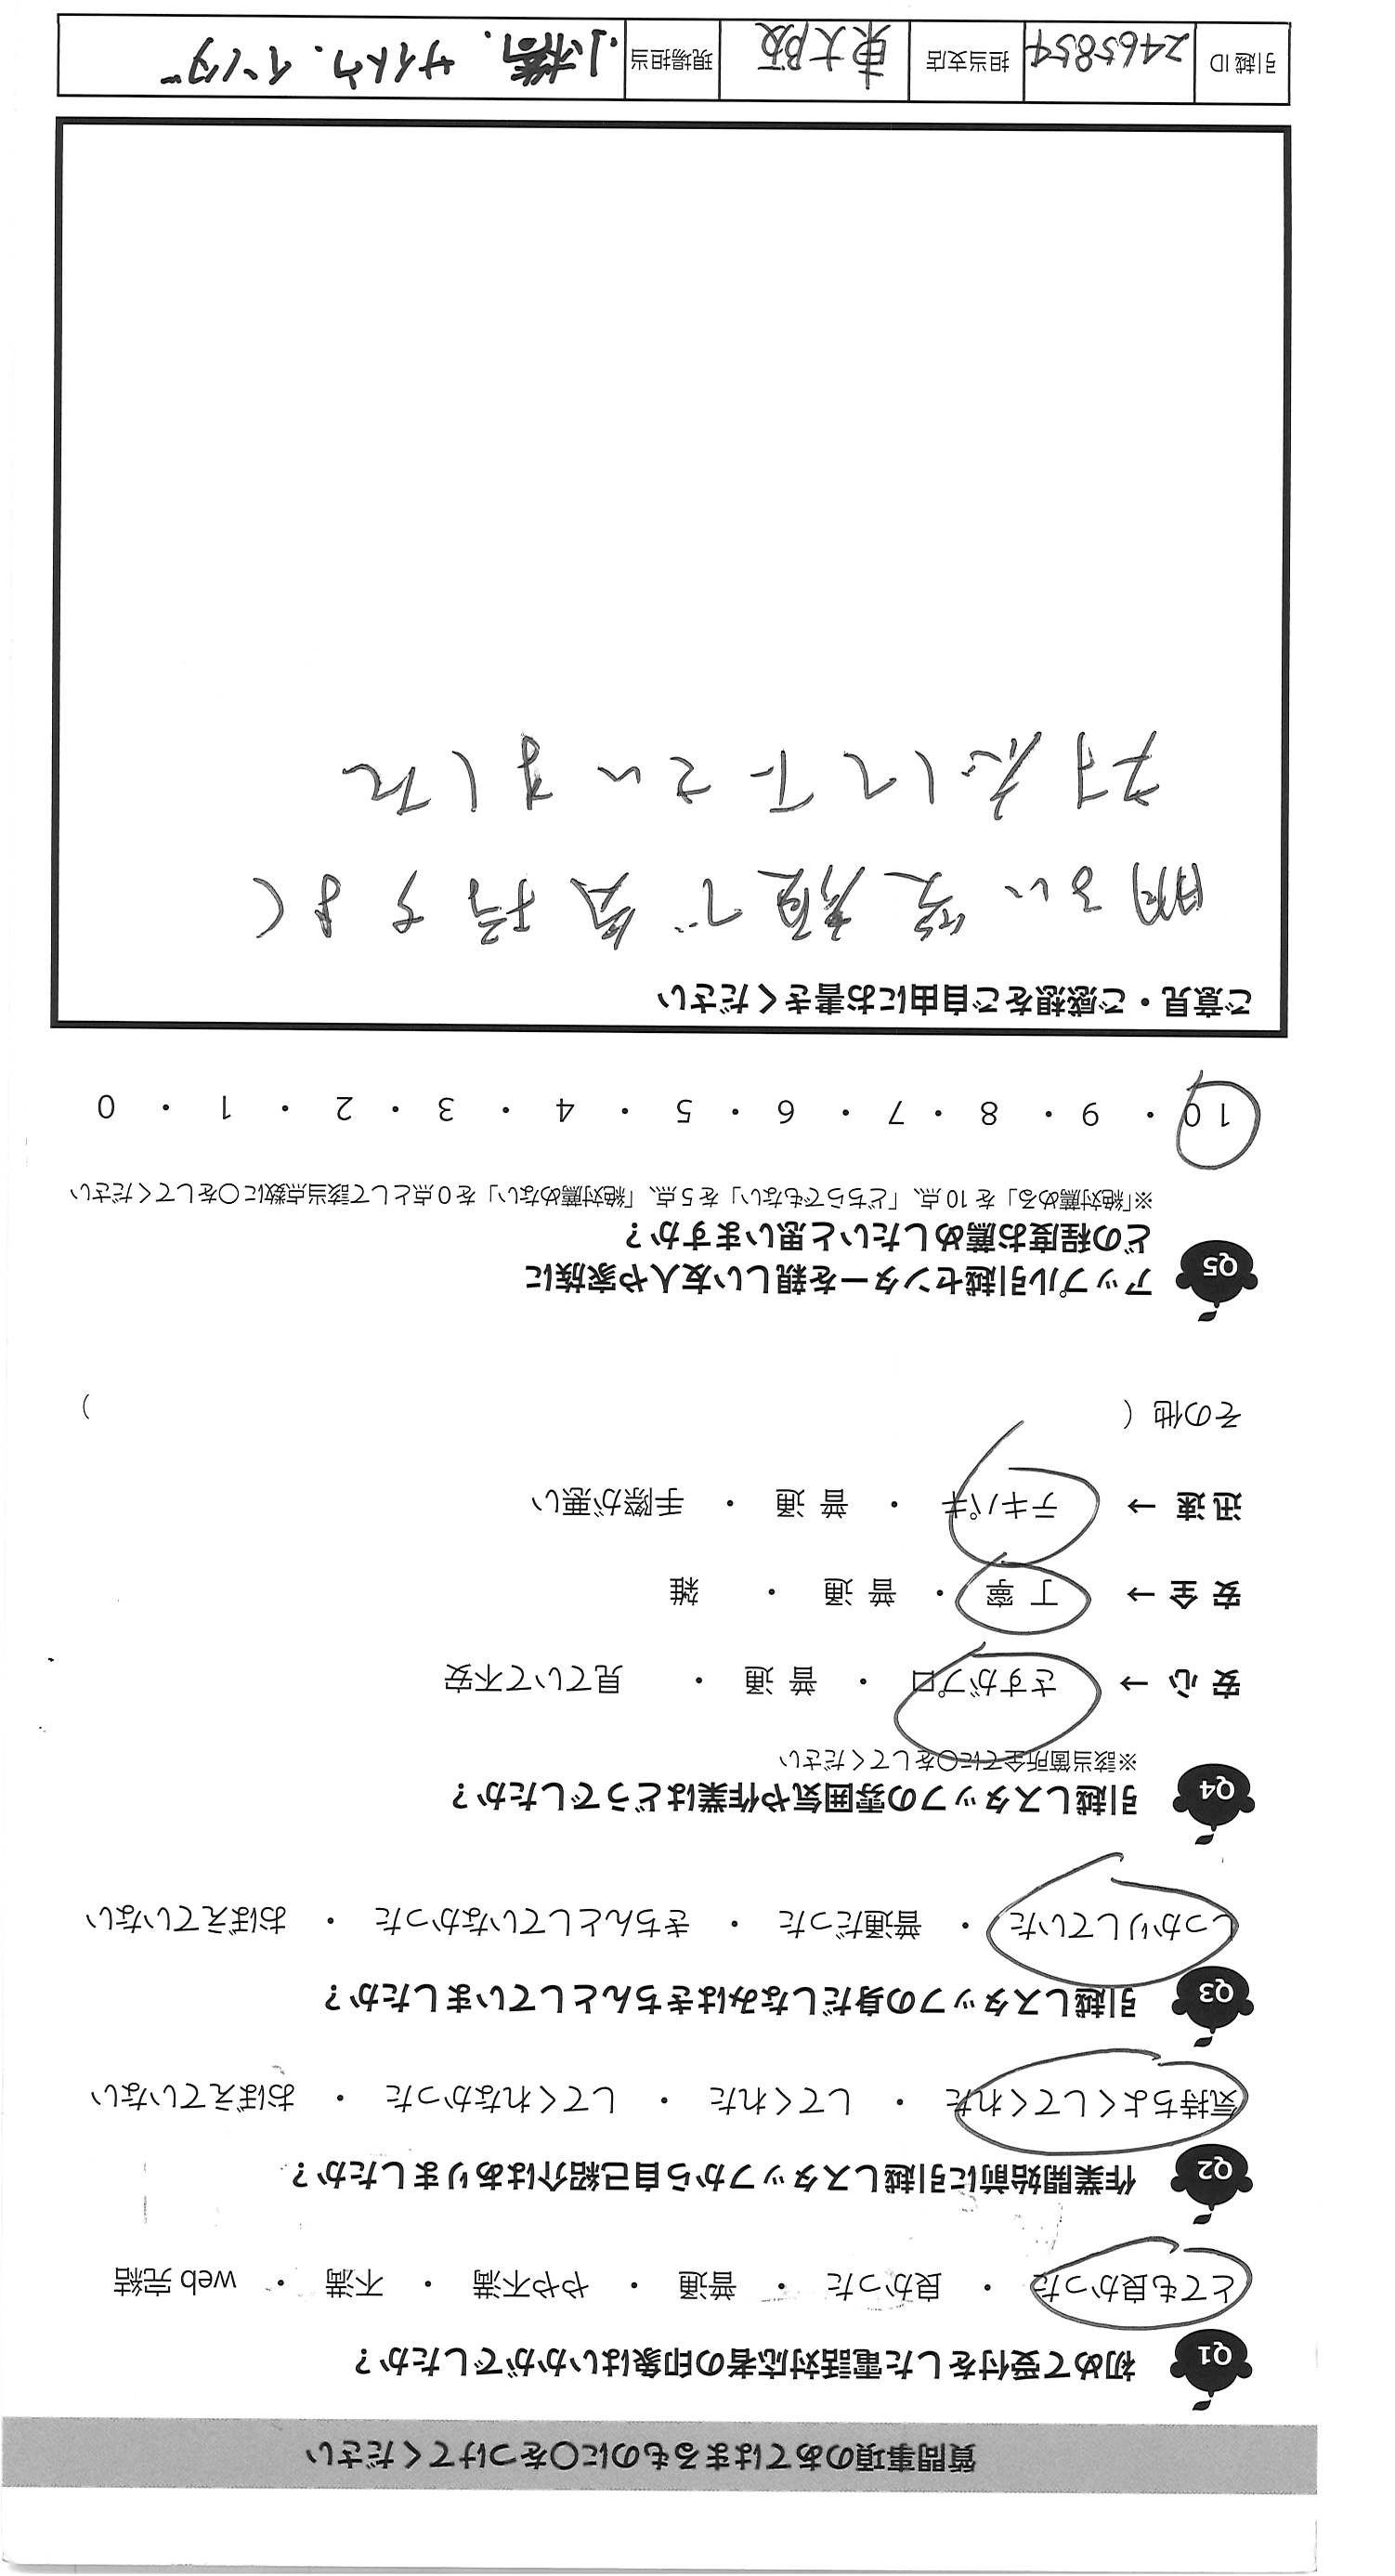 質問事項のあてはまるものに〇をつけてください
Q1 初めて受付をした電話対応者の印象はいかがでしたか？
とても良かった ・ 良かった ・ 普通 ・ やや不満 ・ 不満 ・ web 完結
Q2 作業開始前に引越しスタッフから自己紹介はありましたか？
気持ちよくしてくれた ・ してくれた ・ してくれなかった ・ おぼえていない
Q3 引越しスタッフの身だしなみはきちんとしていましたか？
しっかりしていた ・ 普通だった ・ きちんとしていなかった ・ おぼえていない
Q4 引越しスタッフの雰囲気や作業はどうでしたか？
※該当箇所全てに〇をしてください
安 心 → さすがプロ ・ 普 通 ・ 見ていて不安
安 全 → 丁 寧 ・ 普 通 ・ 雑
迅 速 → テキパキ ・ 普 通 ・ 手際が悪い
その他（ ）
Q5 アップル引越センターを親しい友人や家族に
どの程度お薦めしたいと思いますか？
※「絶対薦める」を 10 点、「どちらでもない」を 5 点、「絶対薦めない」を 0 点として該当点数に〇をしてください
10 ・ 9 ・ 8 ・ 7 ・ 6 ・ 5 ・ 4 ・ 3 ・ 2 ・ 1 ・ 0
ご意見・ご感想をご自由にお書きください
明るい笑顔で気持ちよく
対応して下さいました
引越 ID 2465854 担当支店 東大阪 現場担当 小橋. サイトウ. インダ